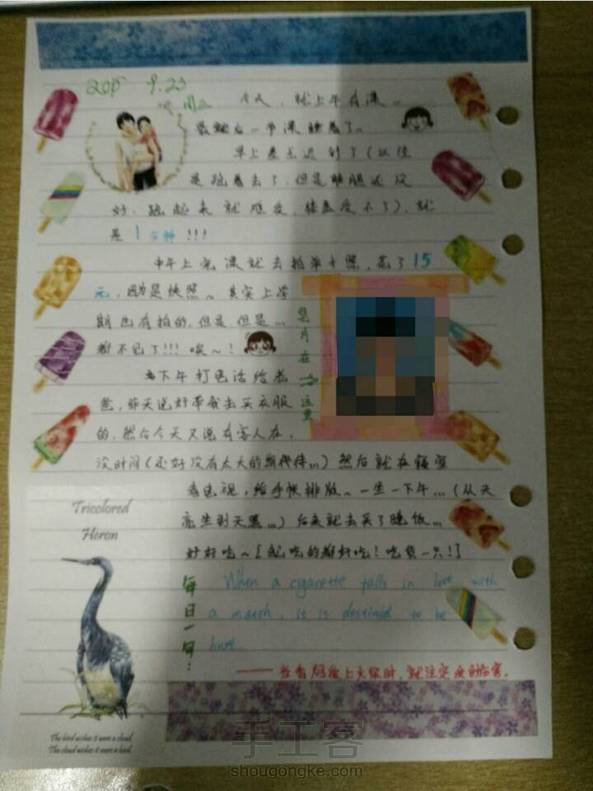 2015 9.23
周三 今天，就上午有课~
最后一节课睡着了~
早上差点迟到了（以往
是跑着去了，但是腿还没
好，跑起来就难受，接受不了），就
差1分钟!!!
中午上完课就去拍举卡照，花了15
元，因为是快照~其实上学
期也有拍的，但是但是...
都不见了!!!唉~!
照片在这里
下午打电话给老
爸，昨天说好带我去买衣服
的，然后今天又说有客人在，
没时间（还好没有太大的期待...）然后就在寝室
看电视，给手帐排版~一坐一下午...（从天
亮坐到天黑...）后来就去买了晚饭...
好好吃~【就吃的都好吃！吃货一只！】
Tricolored
Heron
每日一句：
When a cigarette falls in love with
a match, it is destined to be
hurt.
——当香烟爱上火柴时，就注定受到伤害。
The bird wishes it were a cloud.
The cloud wishes it were a bird.
手工客
shougongke.com